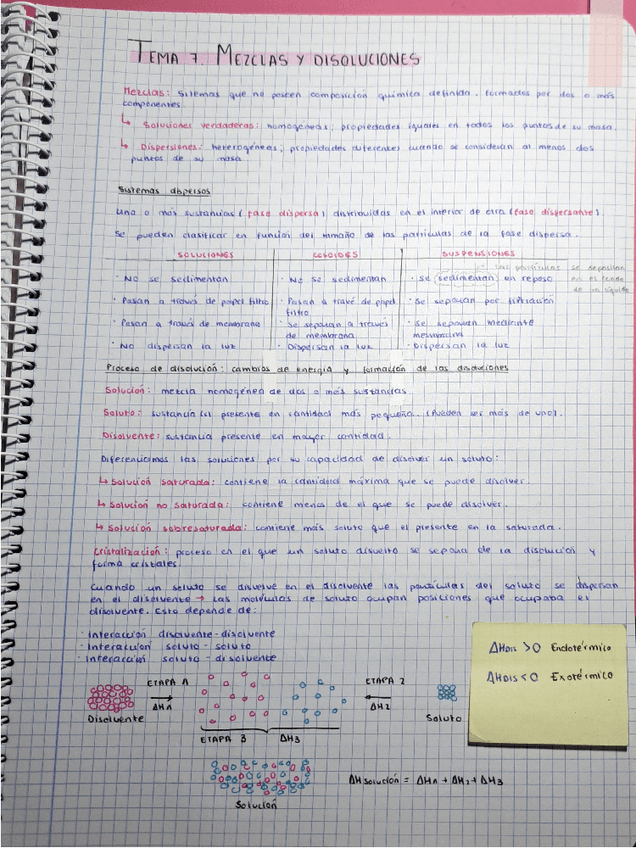 TEMA 7. MEZCLAS Y DISOLUCIONES
Mezclas: sistemas que no poseen composición química definida. Formados por dos o más
componentes.
↳ Soluciones verdaderas: homogéneas; propiedades iguales en todos los puntos de su masa.
↳ Dispersiones: heterogéneas; propiedades diferentes cuando se consideran al menos dos
puntos de su masa
Sistemas dispersos
Una o más sustancias (fase dispersa) distribuidas en el interior de otra (fase dispersante).
Se pueden clasificar en función del tamaño de las partículas de la fase dispersa.
SOLUCIONES COLOIDES SUSPENSIONES
las partículas se depositan
· No se sedimentan · No se sedimentan · Se sedimentan en reposo en el fondo
de un líquido
· Pasan a través de papel filtro · Pasan a través de papel · Se separan por filtración
filtro
· Pasan a través de membrana · Se separan a través · Se separan mediante
de membrana membrana
· No dispersan la luz · Dispersan la luz · Dispersan la luz
Proceso de disolución: cambios de energía y formación de las disoluciones
Solución: mezcla homogénea de dos o más sustancias.
Soluto: sustancia(s) presente en cantidad más pequeña. (Pueden ser más de uno).
Disolvente: sustancia presente en mayor cantidad.
Diferenciamos las soluciones por su capacidad de disolver un soluto:
↳ Solución saturada: contiene la cantidad máxima que se puede disolver.
↳ Solución no saturada: contiene menos de el que se puede disolver.
↳ Solución sobresaturada: contiene más soluto que el presente en la saturada.
Cristalización: proceso en el que un soluto disuelto se separa de la disolución y
forma cristales.
Cuando un soluto se disuelve en el disolvente las partículas del soluto se dispersan
en el disolvente → Las moléculas de soluto ocupan posiciones que ocupaba el
disolvente. Esto depende de:
· Interacción disolvente-disolvente
· Interacción soluto-soluto
· Interacción soluto-disolvente
ΔHDIS >0 Endotérmico
ΔHDIS <0 Exotérmico
ETAPA 1 ETAPA 2
ΔH1 ΔH2
Disolvente Soluto
ETAPA 3 ΔH3
ΔHsolución = ΔH1 + ΔH2 + ΔH3
Solución